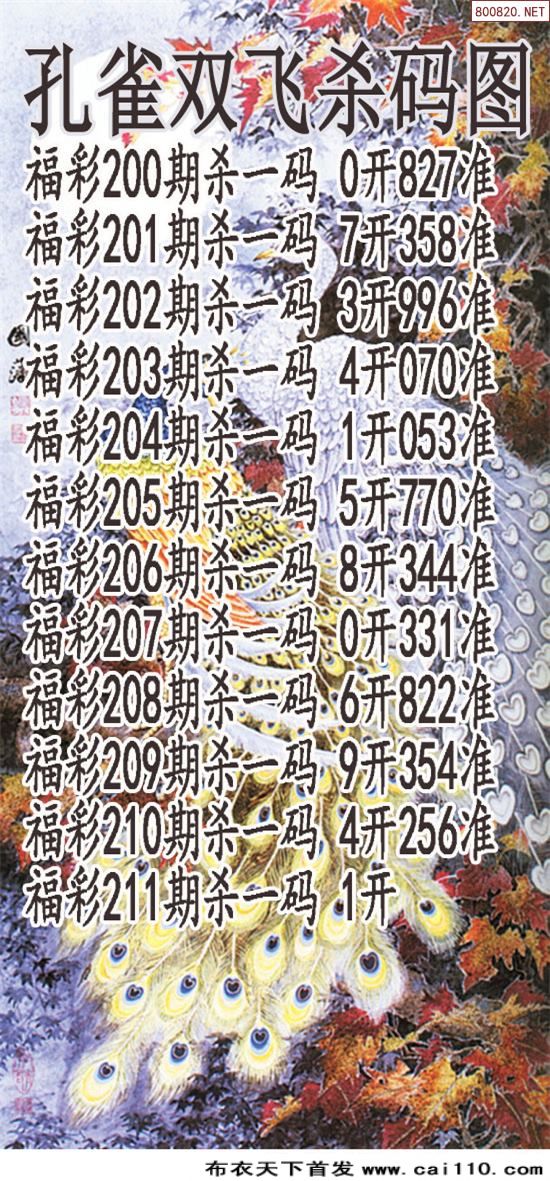 800820.NET
孔雀双飞杀码图
福彩200期杀一码 0开827准
福彩201期杀一码 7开358准
福彩202期杀一码 3开996准
福彩203期杀一码 4开070准
福彩204期杀一码 1开053准
福彩205期杀一码 5开770准
福彩206期杀一码 8开344准
福彩207期杀一码 0开331准
福彩208期杀一码 6开822准
福彩209期杀一码 9开354准
福彩210期杀一码 4开256准
福彩211期杀一码 1开
布衣天下首发 www.cai110.com